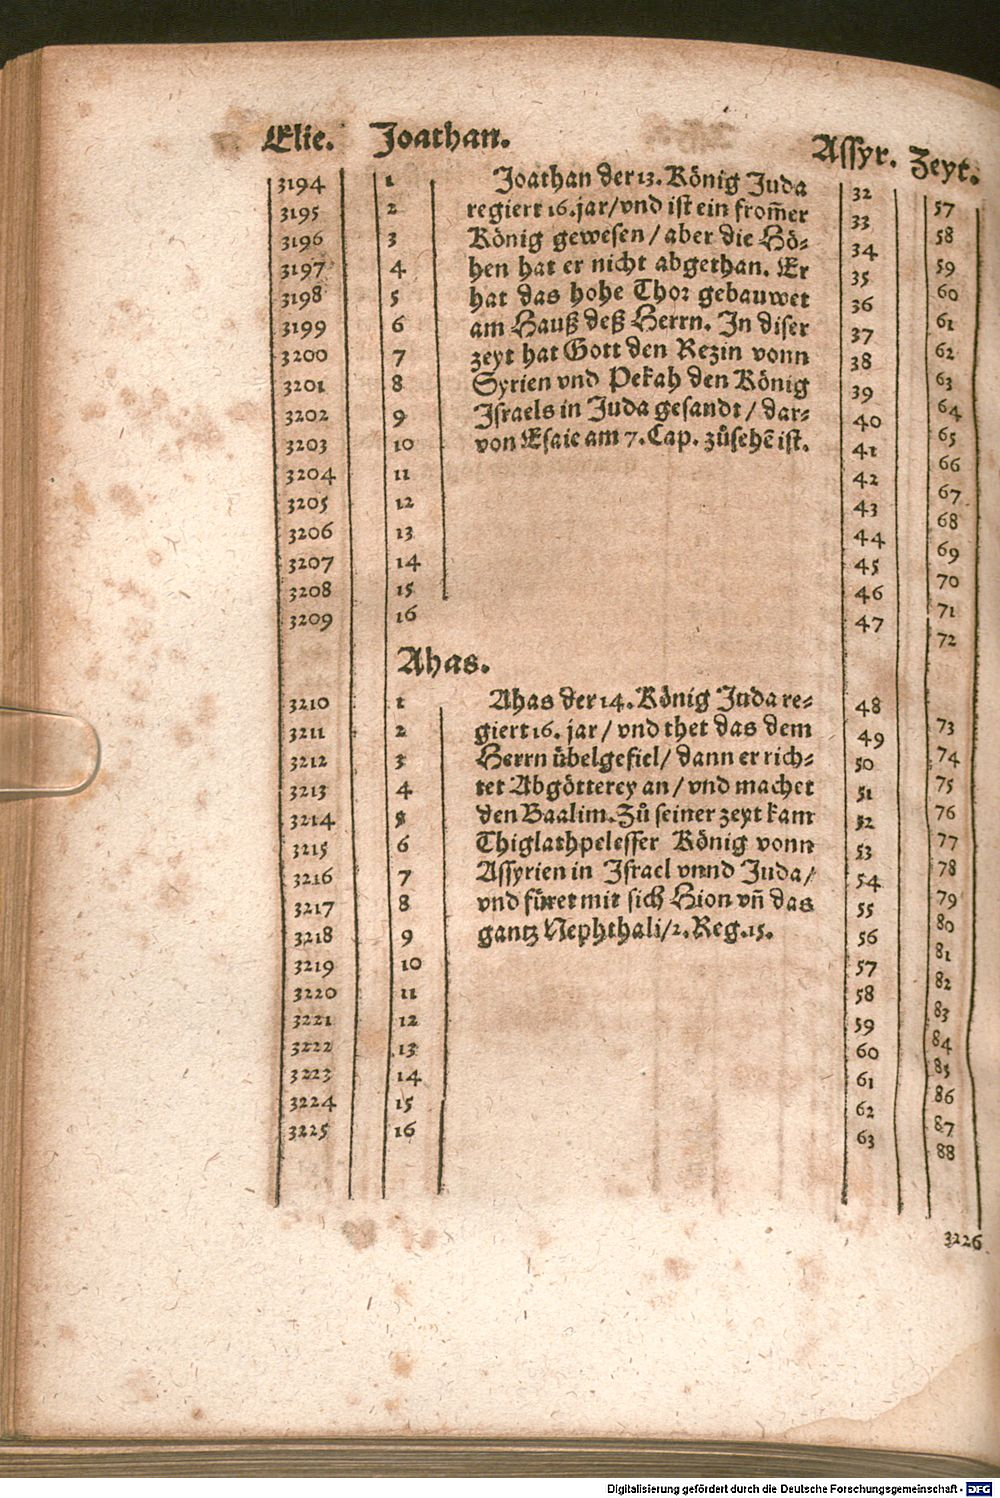 Elie. Joathan. Assyr. Zeyt.
3194 1 Joathan der 13. König Juda 32 57
3195 2 regiert 16. jar/vnd ist ein from̃er 33 58
3196 3 König gewesen/aber die Hö⸗ 34 59
3197 4 hen hat er nicht abgethan. Er 35 60
3198 5 hat das hohe Thor gebauwet 36 61
3199 6 am Hauß deß Herrn. In diser 37 62
3200 7 zeyt hat Gott den Rezin vonn 38 63
3201 8 Syrien vnd Pekah den König 39 64
3202 9 Israels in Juda gesandt/dar⸗ 40 65
3203 10 von Esaie am 7. Cap. zů sehẽ ist. 41 66
3204 11 42 67
3205 12 43 68
3206 13 44 69
3207 14 45 70
3208 15 46 71
3209 16 47 72
Ahas.
3210 1 Ahas der 14. König Juda re⸗ 48 73
3211 2 giert 16. jar/vnd thet das dem 49 74
3212 3 Herrn übelgefiel/dann er rich⸗ 50 75
3213 4 tet Abgötterey an/vnd machet 51 76
3214 5 den Baalim. Zů seiner zeyt kam 52 77
3215 6 Thiglathpelesser König vonn 53 78
3216 7 Assyrien in Israel vnnd Juda/ 54 79
3217 8 vnd füret mit sich Hion vñ das 55 80
3218 9 gantz Nephthali/2. Reg. 15. 56 81
3219 10 57 82
3220 11 58 83
3221 12 59 84
3222 13 60 85
3223 14 61 86
3224 15 62 87
3225 16 63 88
3226
Digitalisierung gefördert durch die Deutsche Forschungsgemeinschaft - DFG